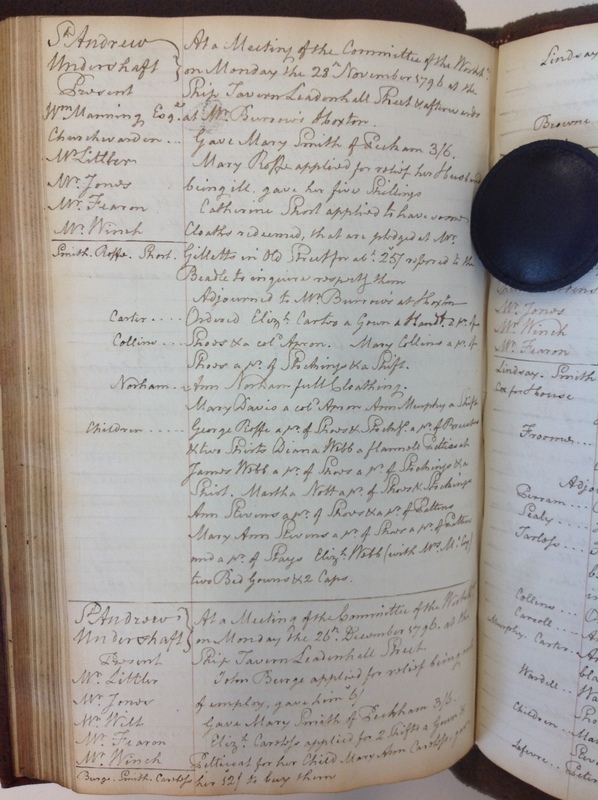 St Andrew Undershaft
Present
Wm Manning Esqr
Churchwarden ...
Mr Littler
Mr Jones
Mr Fearon
Mr Winch
Smith. Roffe. Short.
At a Meeting of the Committee of the Workhe
on Monday the 28th November 1796 at the
Ship Tavern Leadenhall Street & afterwards
at Mr Burrow's Hoxton.
Gave Mary Smith of Peckham 3/6.
Mary Roffe applied for relief her Husband
being ill. gave her five Shillings
Catherine Short applied to have some
Cloaths redeemed, that are pledged at Mr
Gilletts in Old Street for abt. 25/ referred to the
Beadle to inquire respectg them
Adjourned to Mr Burrows at Hoxton
Carter .... Ordered Elizh. Carter a Gown a Handf. a pr. of
Collins ... Shoes & a cold Apron. Mary Collins a pr. of
Shoes a pr. of Stockings & a Shift.
Norham ... Ann Norham full Cloathing.
Mary Davis a cold Apron Ann Murphy a Shift
Children ..... George Roffe a pr. of Shoes & Stockgs. a pr. of Breeches
& two Shirts Diana Webb a flannell Petticoat
James Webb a pr. of Shoes a pr. of Stockings & a
Shirt. Martha Nott a pr. of Shoes & Stockings
Ann Stevens a pr. of Shoes & a pr. of Pattens
Mary Ann Stevens a pr. of Shoes a pr. of Pattens
and a pr. of Stays Elizh. Webb (with Mrs
two Bed Gowns & 2 Caps.
St Andrew Undershaft
Present
Mr Littler
Mr Jones
Mr Wilt
Mr Fearon
Mr Winch
Burge. Smith. Careless
At a Meeting of the Committee of the
on Monday the 26th. December 1796. at the
Ship Tavern Leadenhall Street
John Burge applied for relief being out
of employ, gave him
Gave Mary Smith of Peckham 3/6.
Elizh Careless applied for 2 Shifts a Gown &
Petticoat for her Child Mary Ann Careless, gave
her 12/ to buy them
Lindsay
Browne
Mr Jones
Mr Winch
Mr Fearon
Lindsay. Smith
Froome...
Adjo
Perram...
Sealy...
Collins ...
Carroll...
Murphy. Carter
Wardell..
Children...
Lefevre...